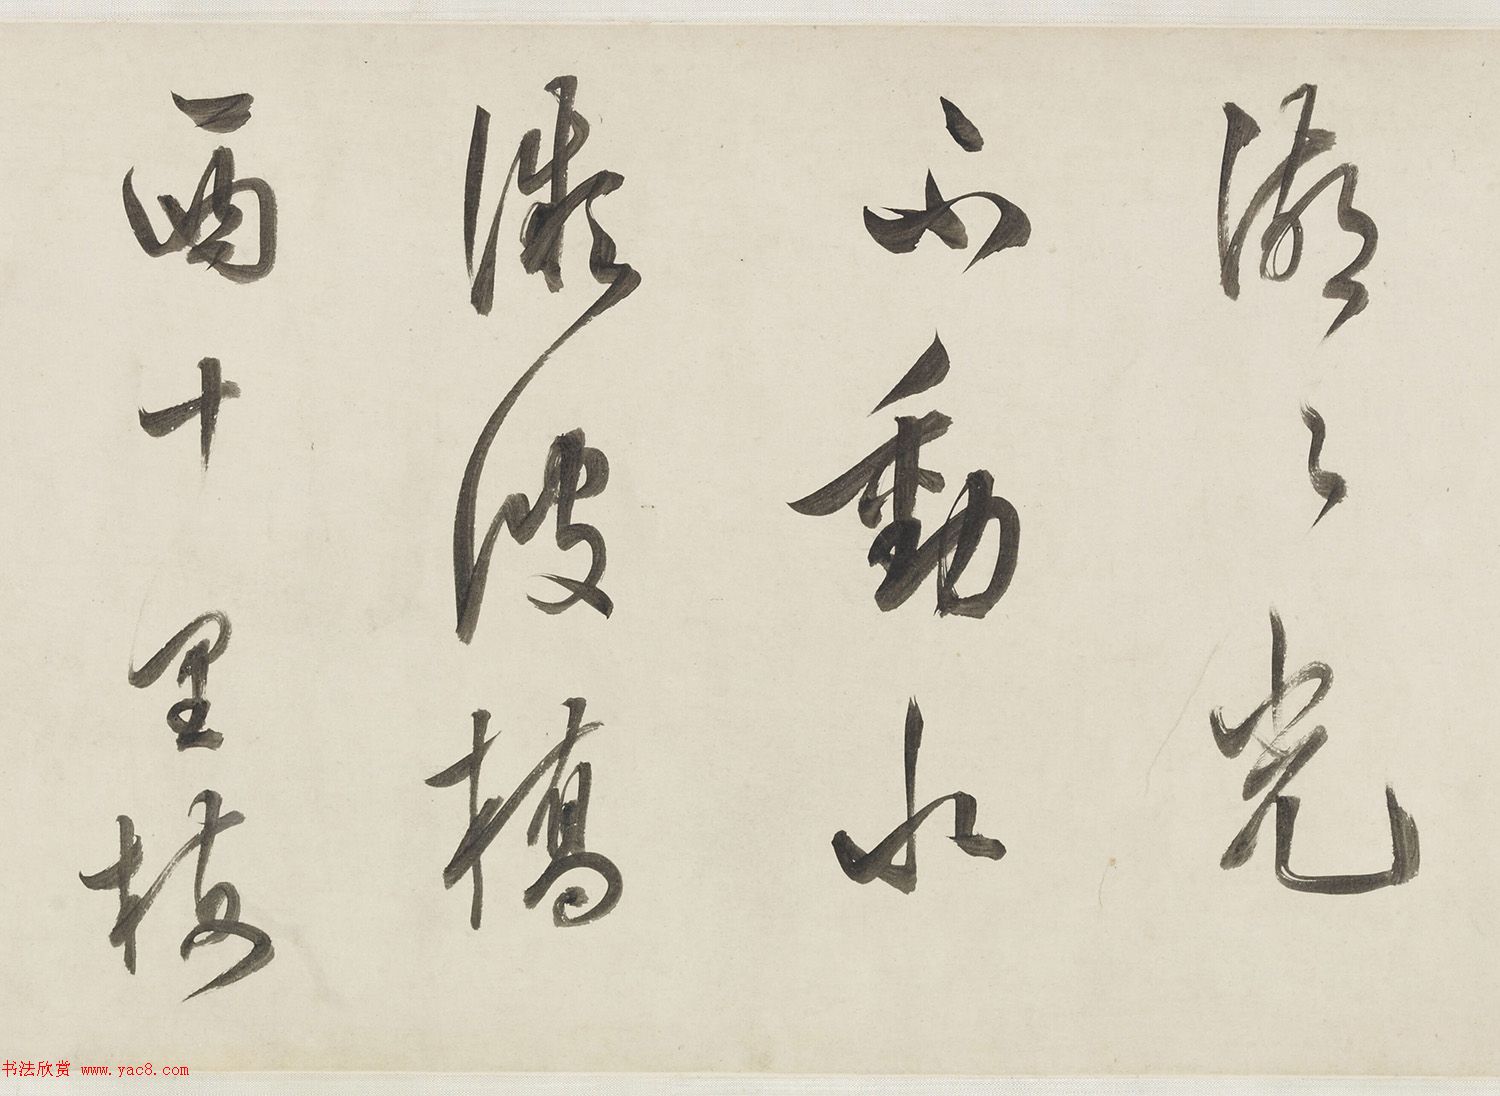 光
不動水
波橋
西十里梅
书法欣赏 www.yac8.com